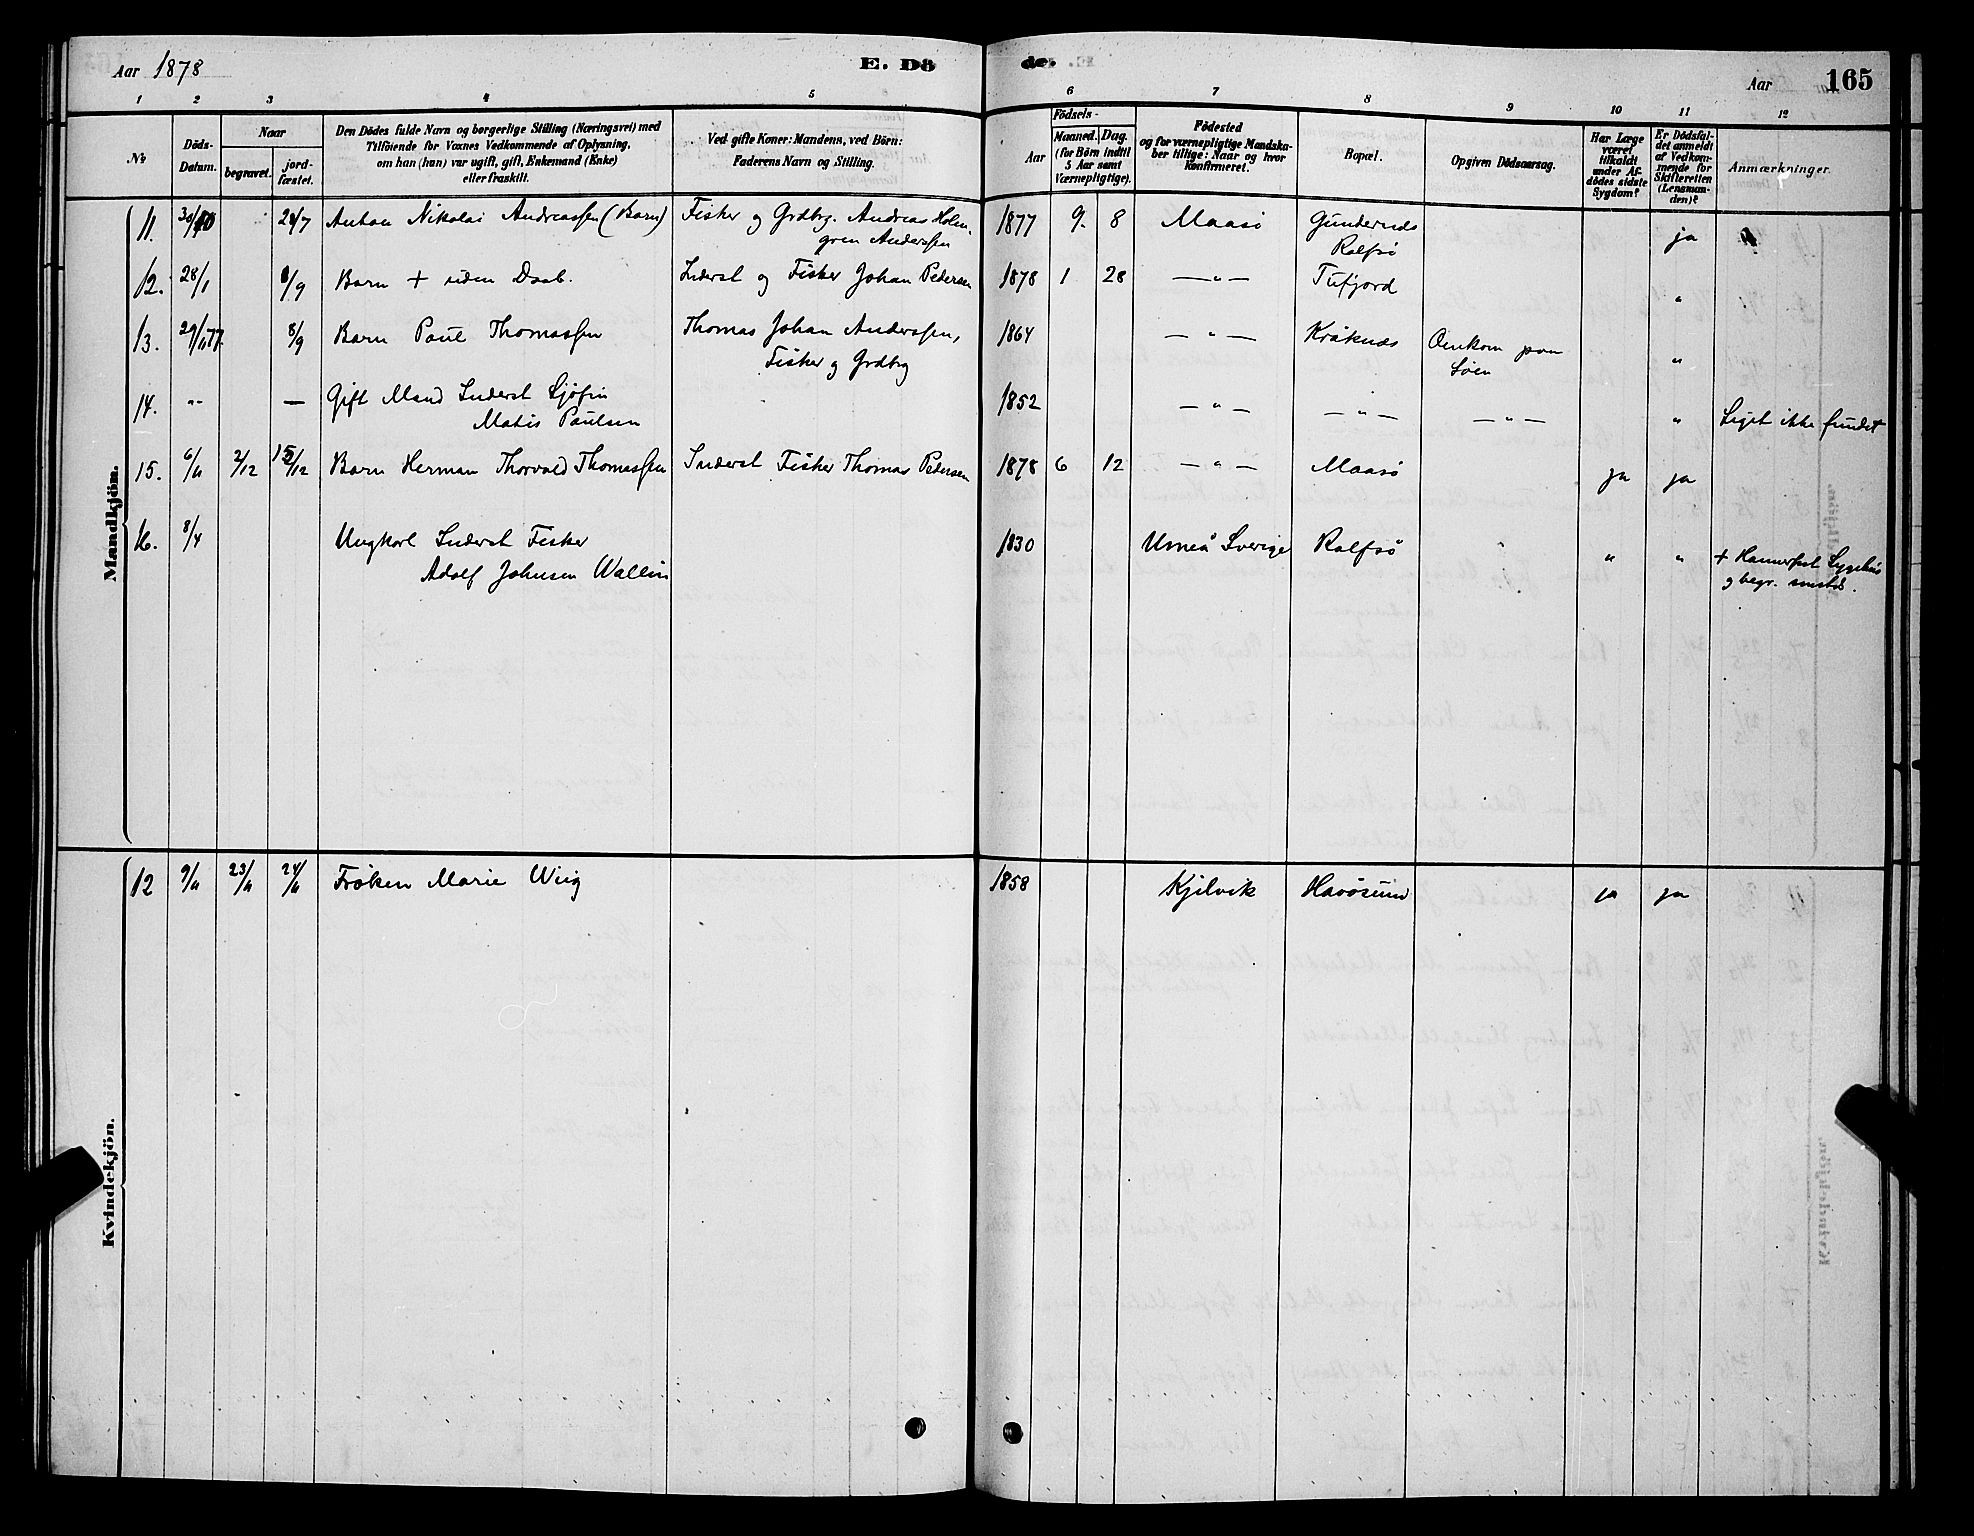 Aar 1878
E. Dö
de.
Aar 165
1 2 3 4 5 6 7 8 9 10 11 12
No
Döds-
Datum.
Naar
begravet.
jord-
fæstet.
Den Dödes fulde Navn og borgerlige Stilling (Næringsvei) med
Tilföiende for Voxnes Vedkommende af Oplysning,
om han (hun) var ugift, gift, Enkemand (Enke)
eller fraskilt.
Ved gifte Koner: Mandens, ved Börn:
Faderens Navn og Stilling.
Aar
Födsels-
Maaned. Dag.
(for Börn indtil
5 Aar samt
Værnepligtige).
Födested
og for værnepligtige Mandska-
ber tillige: Naar og hvor
Konfirmeret.
Bopæl.
Opgiven Dödsaarsag.
Har Læge
været
tilkaldt
under Af-
dödes sidste
Sygdom?
Er Dödsfal-
det anmeldt
af Vedkom-
mende for
Skifteretten
(Lensman-
den)?
Anmærkninger.
Mandkjön.
11. Anton Nikolai Andreassen (Barn) Fisker og Grdbrg. Andreas Holm-
gren Anderssen 1877 9. 8 Maasö Gundernæs
Rolfsö ja
12. 28/1 8/9 Barn + uden Daab. Inderst og Fisker Johan Pedersen 1878 1 28 — " — Tufjord "
13. 29/11 77. 8/9 Barn Paul Thomassen Thomas Johan Anderssen,
Fisker og Grdbrg 1864 — " — Kråknæs Omkom paa
Söen "
14. " — Gift Mand Inderst Sjöfin
Matis Paulsen 1852 — " — — " — — " — " Liget ikke fundet
15. 6/11 2/12 15/12 Barn Herman Thorvald Thomassen Inderst Fisker Thomas Pedersen 1878 6 12 — " — Maasö ja ja
16. 8/4 Ungkarl Inderst Fisker
Adolf Johnsen Wallin 1830 Umeå Sverige Rolfsö " " + Hamerfest Sygehus
og begr. smstds.
Kvindekjön.
12 9/11 23/11 24/11 Fröken Marie Wiig 1858 Kjelvik Havösund ja ja